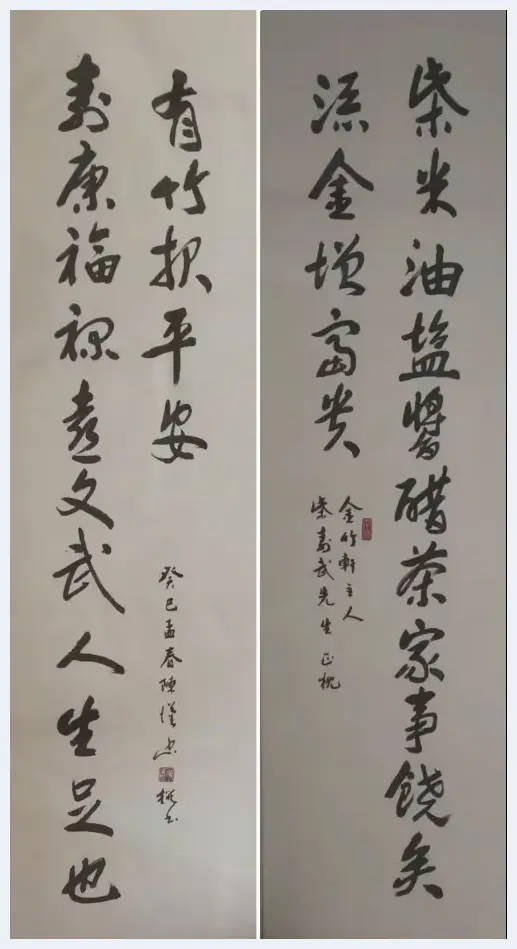 柴米油塩醬醋茶家事饒矣
流金增富贵
金竹軒主人
柴寿武先生 正
寿康福禄喜文武人生足也
有竹报平安
癸巳孟春陳漢忠
撰书